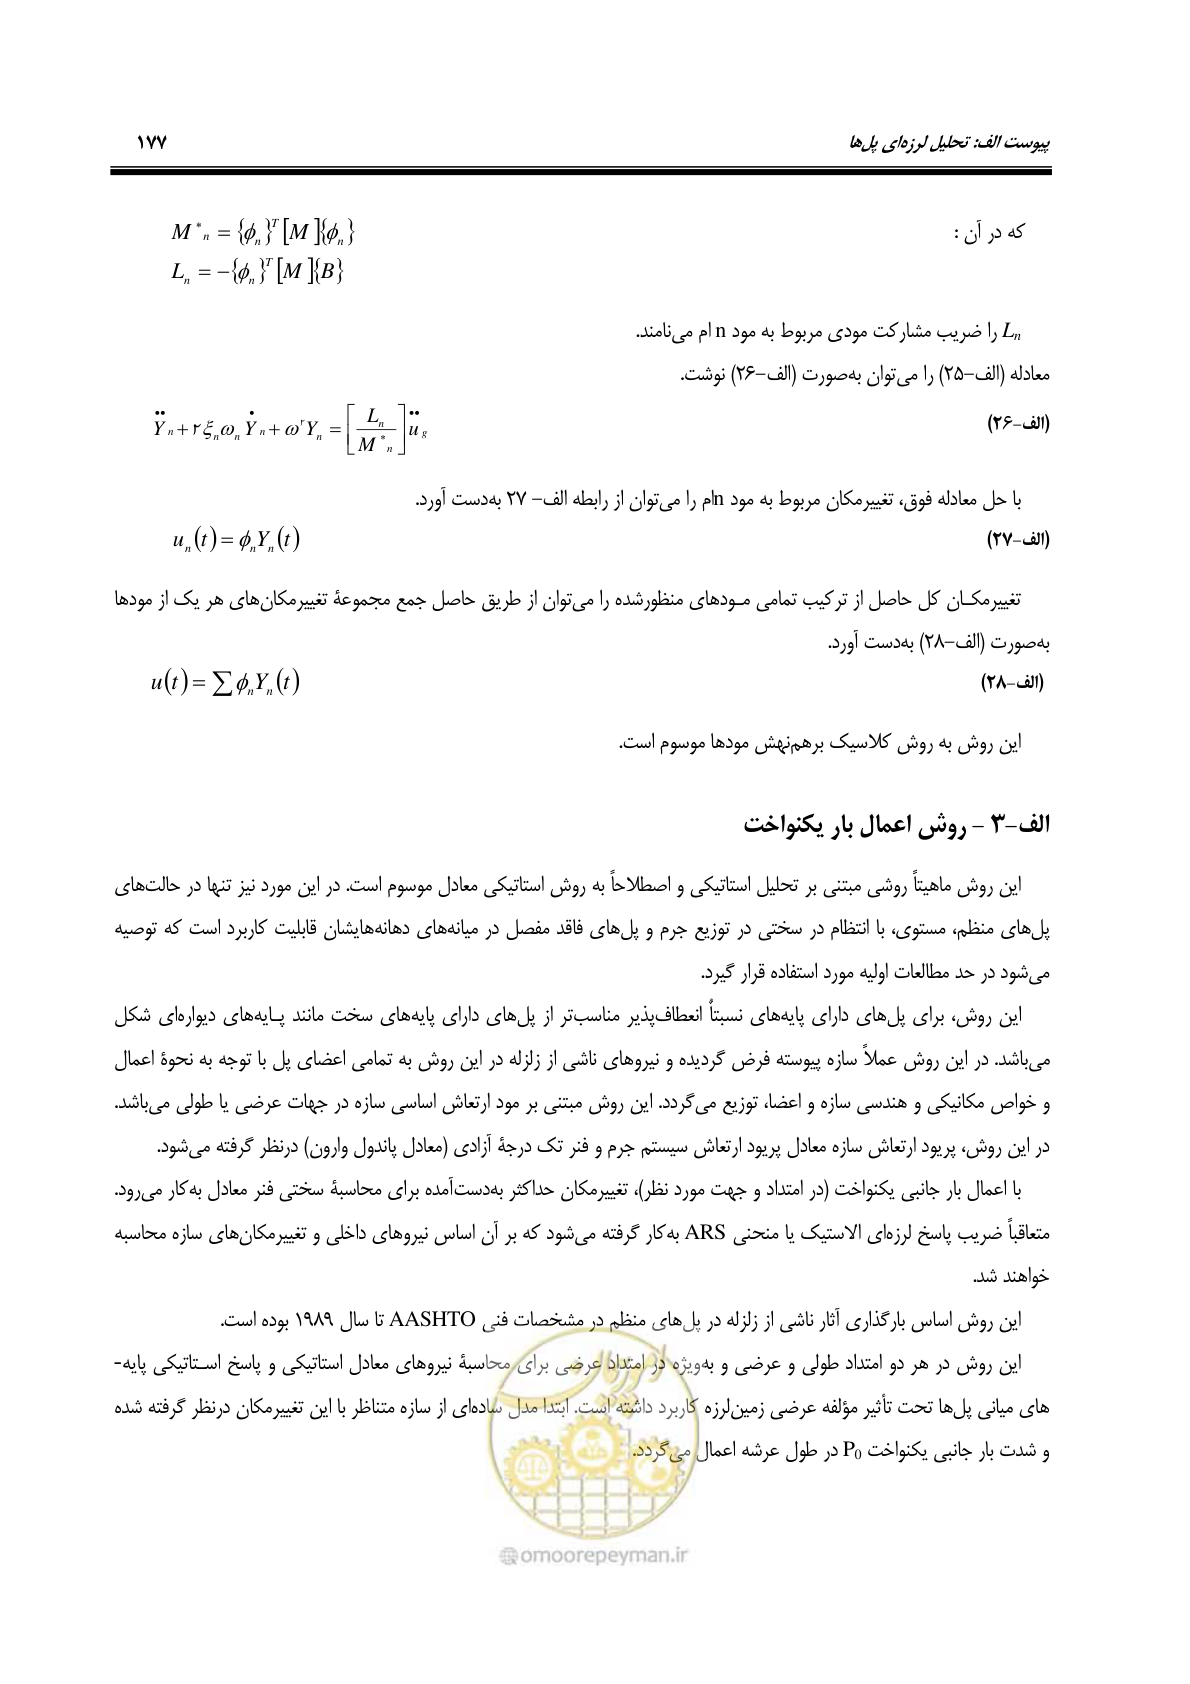 پیوست الف: تحلیل لرزه‌ای پل‌ها ۱۷۷
که در آن :
M*n = {ϕn}^T [M]{ϕn}
Ln = −{ϕn}^T [M]{B}
Ln را ضریب مشارکت مودی مربوط به مود n ام می‌نامند.
معادله (الف–۲۵) را می‌توان به‌صورت (الف–۲۶) نوشت.
(الف–۲۶) Ÿn + ۲ξnωn Ẏn + ω^۲Yn = [Ln / M*n] üg
با حل معادله فوق، تغییرمکان مربوط به مود nام را می‌توان از رابطه الف– ۲۷ به‌دست آورد.
(الف–۲۷) un(t) = ϕnYn(t)
تغییرمکـان کل حاصل از ترکیب تمامی مـودهای منظورشده را می‌توان از طریق حاصل جمع مجموعهٔ تغییرمکان‌های هر یک از مودها
به‌صورت (الف–۲۸) به‌دست آورد.
(الف–۲۸) u(t) = ∑ϕnYn(t)
این روش به روش کلاسیک برهم‌نهش مودها موسوم است.
الف–۳ – روش اعمال بار یکنواخت
این روش ماهیتاً روشی مبتنی بر تحلیل استاتیکی و اصطلاحاً به روش استاتیکی معادل موسوم است. در این مورد نیز تنها در حالت‌های
پل‌های منظم، مستوی، با انتظام در سختی در توزیع جرم و پل‌های فاقد مفصل در میانه‌های دهانه‌هایشان قابلیت کاربرد است که توصیه
می‌شود در حد مطالعات اولیه مورد استفاده قرار گیرد.
این روش، برای پل‌های دارای پایه‌های نسبتاٌ انعطاف‌پذیر مناسب‌تر از پل‌های دارای پایه‌های سخت مانند پـایه‌های دیواره‌ای شکل
می‌باشد. در این روش عملاً سازه پیوسته فرض گردیده و نیروهای ناشی از زلزله در این روش به تمامی اعضای پل با توجه به نحوهٔ اعمال
و خواص مکانیکی و هندسی سازه و اعضا، توزیع می‌گردد. این روش مبتنی بر مود ارتعاش اساسی سازه در جهات عرضی یا طولی می‌باشد.
در این روش، پریود ارتعاش سازه معادل پریود ارتعاش سیستم جرم و فنر تک درجهٔ آزادی (معادل پاندول وارون) درنظر گرفته می‌شود.
با اعمال بار جانبی یکنواخت (در امتداد و جهت مورد نظر)، تغییرمکان حداکثر به‌دست‌آمده برای محاسبهٔ سختی فنر معادل به‌کار می‌رود.
متعاقباً ضریب پاسخ لرزه‌ای الاستیک یا منحنی ARS به‌کار گرفته می‌شود که بر آن اساس نیروهای داخلی و تغییرمکان‌های سازه محاسبه
خواهند شد.
این روش اساس بارگذاری آثار ناشی از زلزله در پل‌های منظم در مشخصات فنی AASHTO تا سال ۱۹۸۹ بوده است.
این روش در هر دو امتداد طولی و عرضی و به‌ویژه در امتداد عرضی برای محاسبهٔ نیروهای معادل استاتیکی و پاسخ اسـتاتیکی پایه-
های میانی پل‌ها تحت تأثیر مؤلفه عرضی زمین‌لرزه کاربرد داشته است. ابتدا مدل ساده‌ای از سازه متناظر با این تغییرمکان درنظر گرفته شده
و شدت بار جانبی یکنواخت P0 در طول عرشه اعمال می‌گردد.
امور پیمان
@omoorepeyman.ir